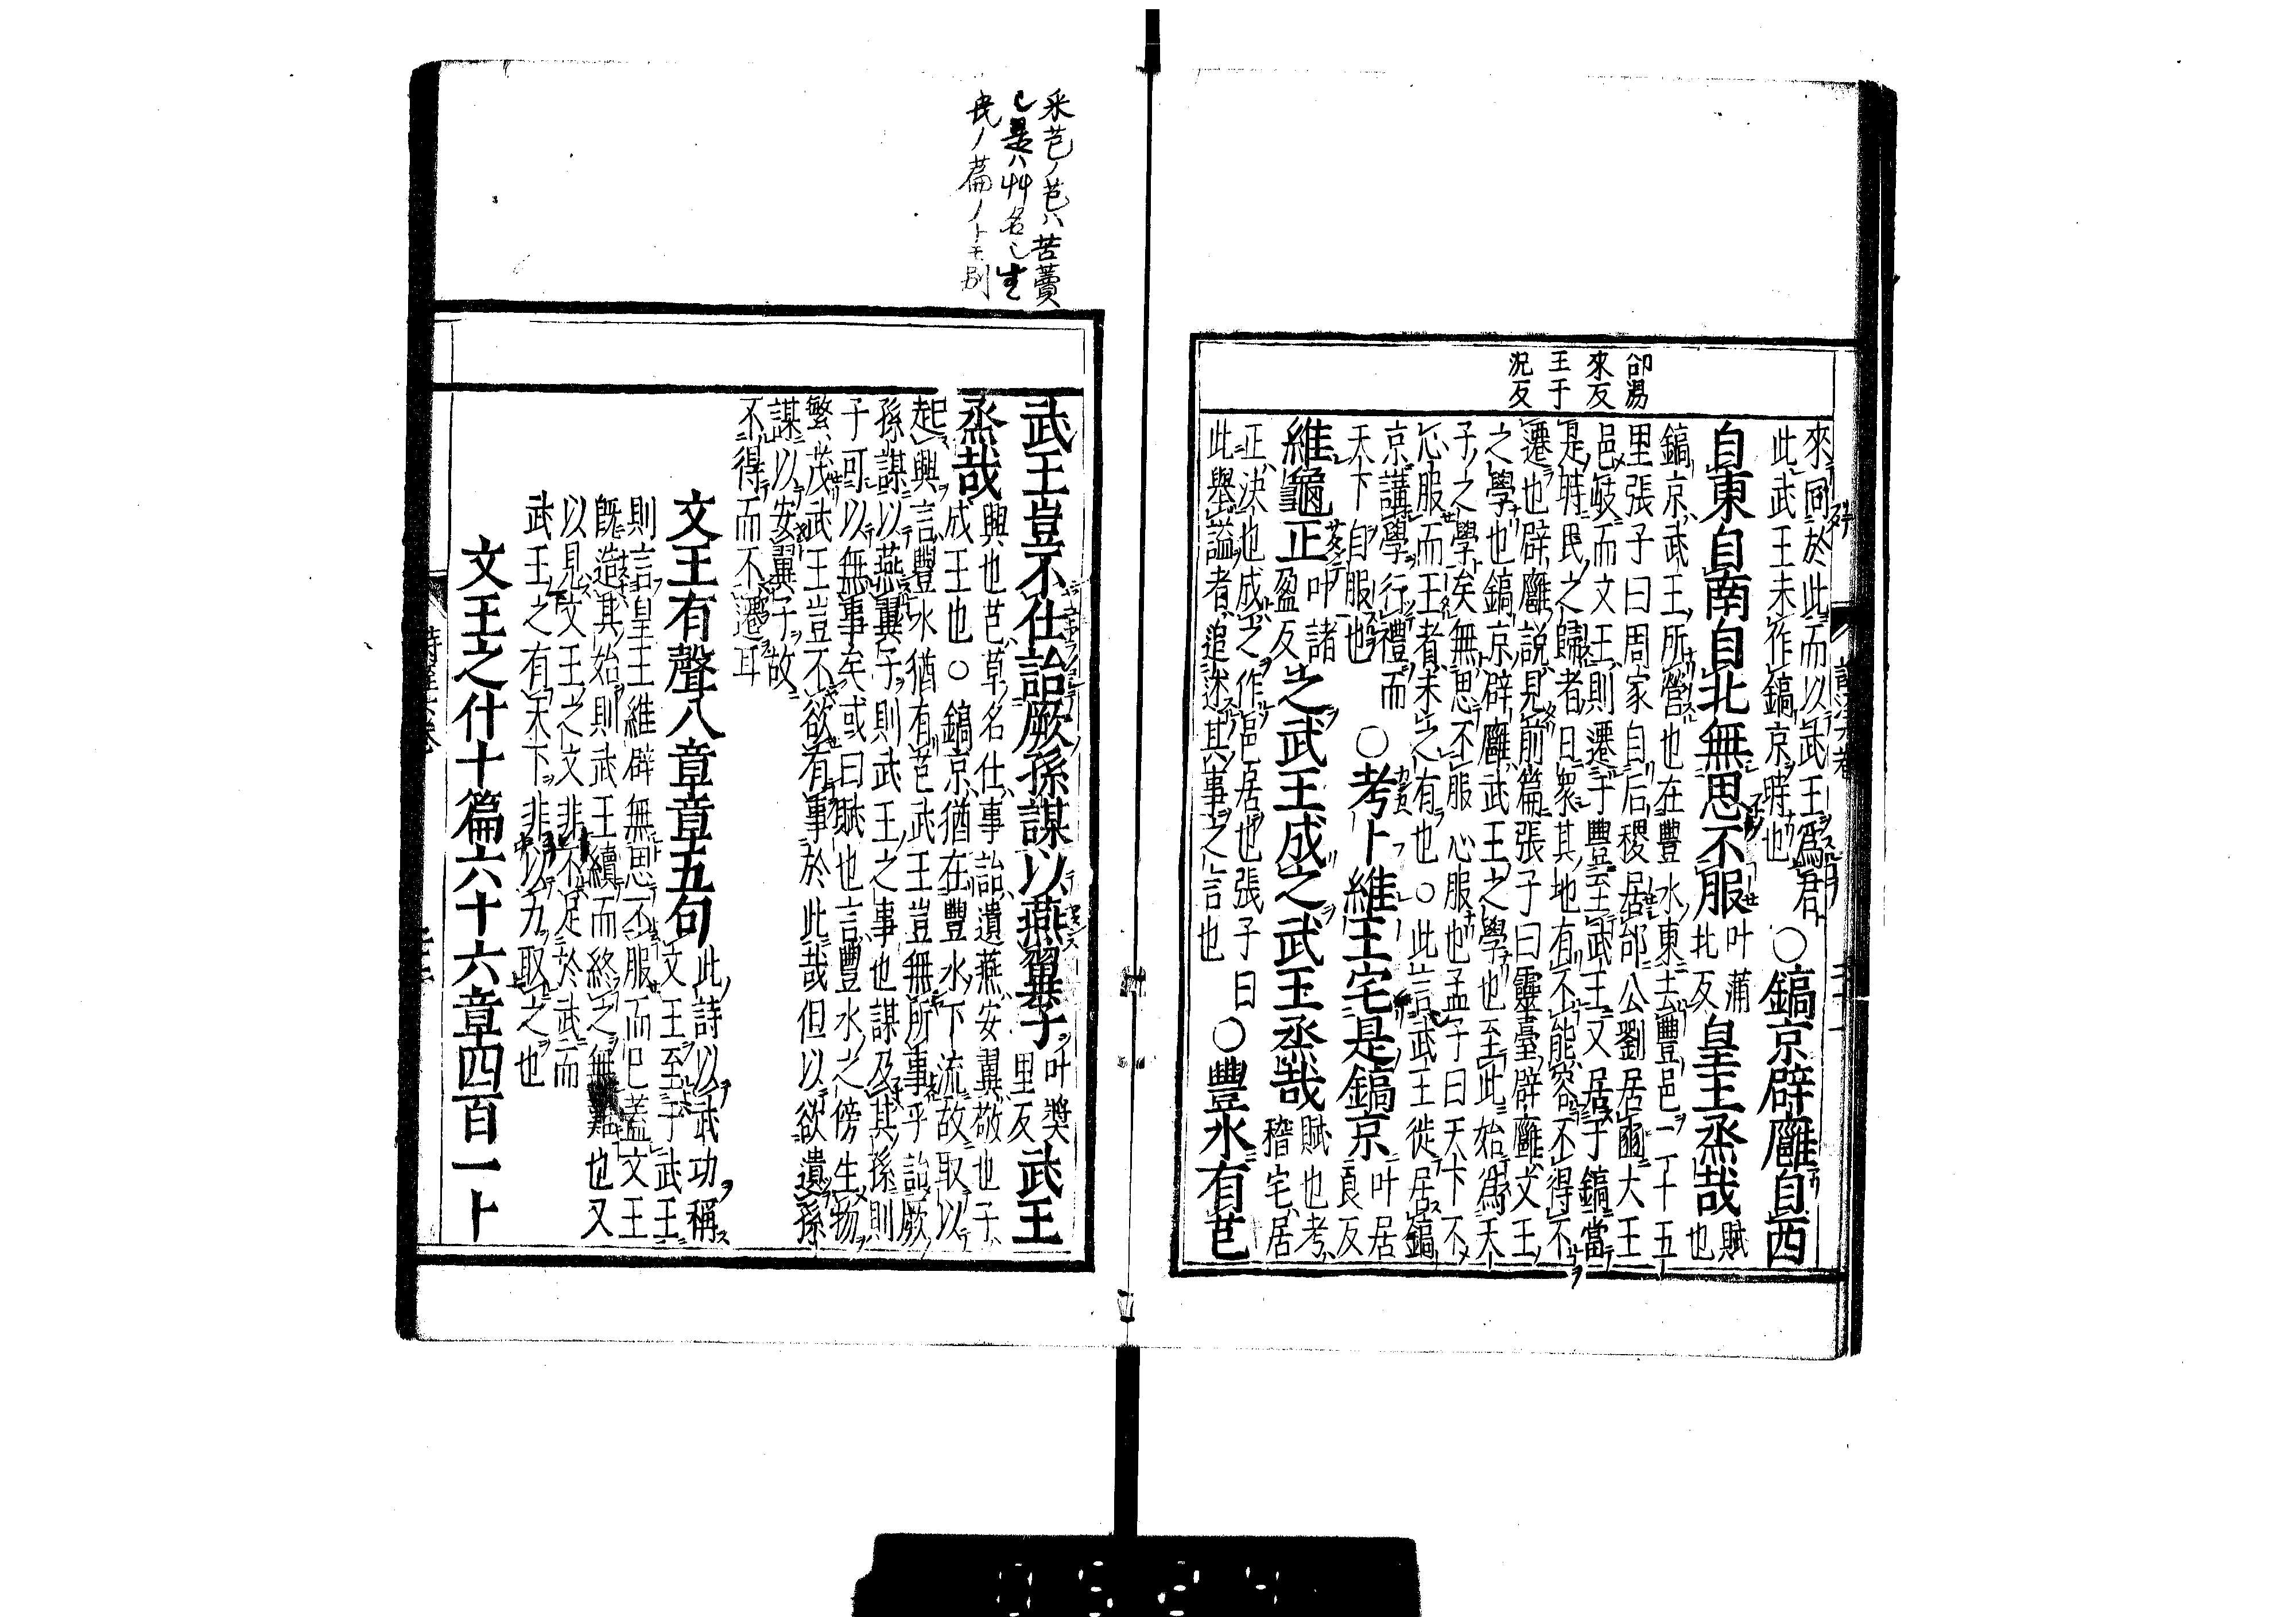 郃湯
來反
王于
況反
來同於此而以武王爲君
此武王未作鎬京時也
○鎬京辟廱自西
自東自南自北無思不服
叶蒲
北反
皇王烝哉
賦
也
鎬京武王所營也在豐水東去豐邑二十五
里張子曰周家自后稷居邰公劉居豳大王
邑岐而文王則遷于豐至武王又居于鎬當
是時民之歸者日衆其地有不能容不得不
遷也辟廱說見前篇張子曰靈臺辟廱文王
之學也鎬京辟廱武王之學也至此始爲天
子之學矣無思不服心服也孟子曰天下不
心服而王者未之有也○此言武王徙居鎬
京講學行禮而
天下自服也
○考卜維王宅是鎬京
叶居
良反
維龜正
叶諸
盈反
之武王成之武王烝哉
賦也考
稽宅居
正決也成之作邑居也張子曰
此舉謚者追述其事之言也
○豐水有芑
采芑ノ芑ハ苦蕒
也是ハ艸名也生
民ノ篇ノトモ別
武王豈不仕詒厥孫謀以燕翼子
叶奬
里反
武王
烝哉
興也芑草名仕事詒遺燕安翼敬也子
成王也○鎬京猶在豐水下流故取以
起興言豐水猶有芑武王豈無所事乎詒厥
孫謀以燕翼子則武王之事也謀及其孫則
子可以無事矣或曰賦也言豐水之傍生物
繁茂武王豈不欲有事於此哉但以欲遺孫
謀以安翼子故
不得而不遷耳
文王有聲八章章五句
此詩以武功稱
文王至于武王
則言皇王維辟無思不服而已蓋文王
旣造其始則武王續而終之無難也又
以見文王之文非不足於武而
武王之有天下非以力取之也
文王之什十篇六十六章四百一十